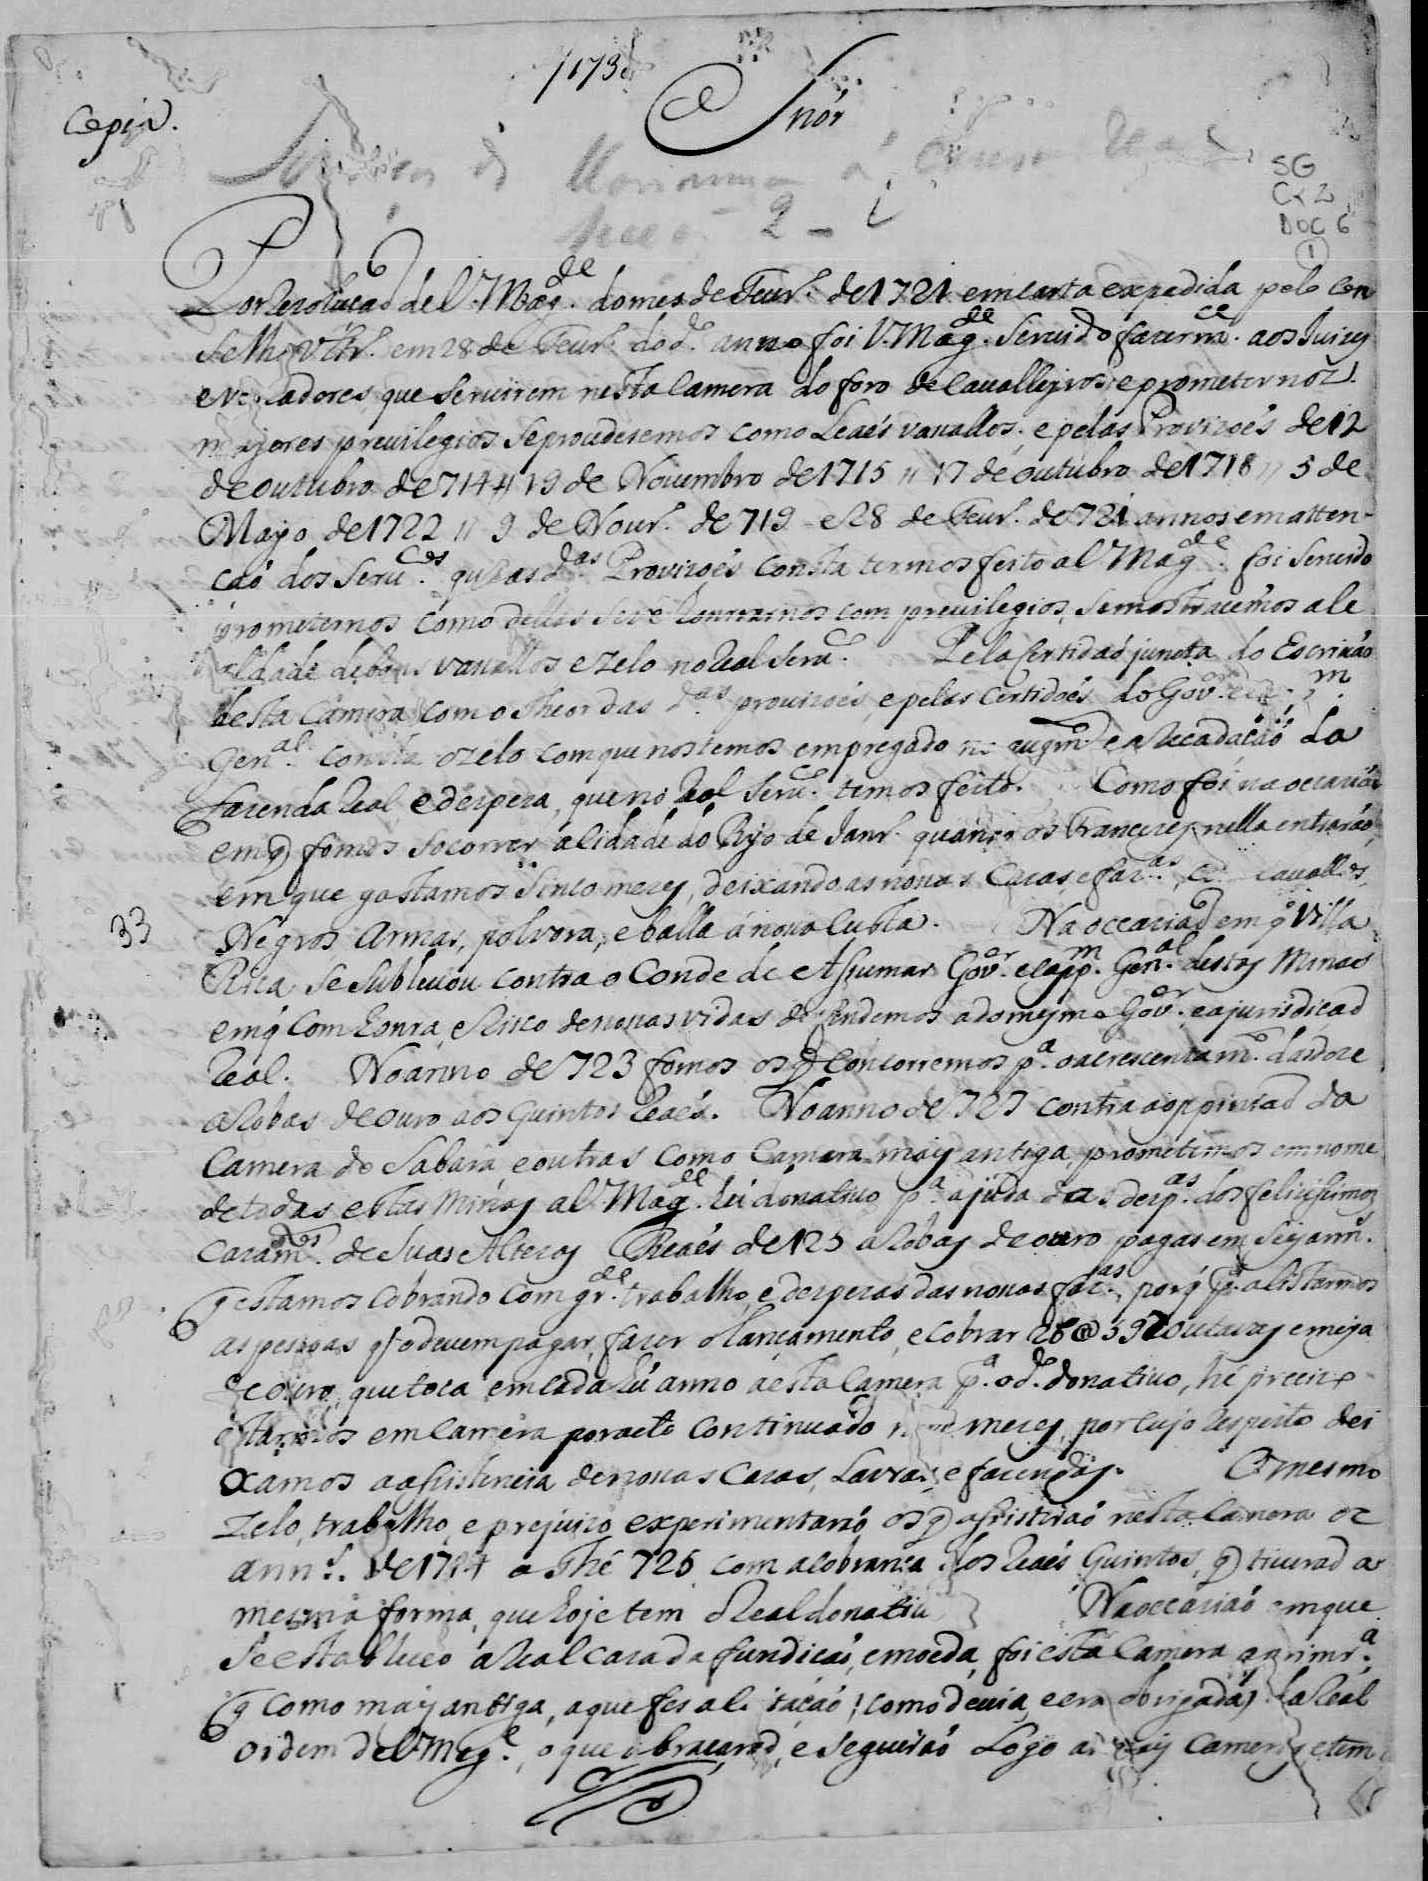 1730
Snõr
Copia.
SG
Cx 2
DOC 6
1
2 -
Por Rezolucaõ de V. Mag.de do mes de Feur.º de 1721 em carta expedida pelo Con
selhº Vltr.º em 28 de Feur.º do d.º anno foi V. Mag.de Seruido fazerm.ce aos Juizes
e vereadores que seruirem nesta Camera do foro de Cavalleyros e prometernos
mayores preuilegios se procedesemos como Leaés vasallos. e pelas Provizoẽs de 12
de outubro de 714 // 19 de Novembro de 1715 // 17 de outubro de 1718 // 5 de
Mayo de 1722 // 9 de Nour.º de 719 e 28 de Feur.º de 721 annos em atten-
caõ dos Seru.cos que das d.as Provizoẽs consta termos feito a V. Mag.de foi Seruido
prometernos como dellas se vê honrarnos com preuilegios, se mostracemos a le
aldade de bons vasallos e zelo no Real Seru.co Pela Certidaõ juncta do Escrivaõ
desta Camera com o Theor das d.as provizoés, e pelas Certidoẽs do Gov.or
Gen.al consta o zelo com que nos temos empregado no augm.to e aRecadacaõ da
fazenda Real e despeza, que no Real Seru.co temos feito. Como foi na ocaziaõ
em q fomos socorrer a Cidade do Ryo de Janr.º quando os Francezes nella entraraõ,
em que gastamos Sinco mezes, deixando as nosas Cazas e faz.as, cavallos,
33
Negros, Armas, polvora, e balla á nosa Custa. Na occaziaõ em q Villa
Rica se Sublevou contra o Conde de Assumar Gov.or e capp.m Gen.al destas Minas
em q Com honra, e Risco de nosas vidas defendemos ao do mesmo Gov.or e a jurisdicaõ
Real. No anno de 723 fomos os q Concorremos p.a o acrescentam.to das doze
aRobas de ouro aos Quintos Reaés. No anno de 727 contra a oppoziçaõ da
Camera do Sabará e outras como Camera mais antiga, prometemos em nome
de todas estas Minas a V. Mag.de hũ donativo p.a ajuda das desp.as dos felicissimos
Cazam.tos de Suas Altezas Reaés de 125 aRobas de ouro pagas em Seis ann.s
q estamos cobrando com gr.de trabalho, e despezas das nosas faz.as, porq p.a alistarmos
as pesoas q o devem pagar, fazer o lançamento, e cobrar 28@597 outavas e meya
de ouro, que toca em cada hũ anno a esta Camera p.a o d.º donativo, hé preciso
estarmos em Camera por acto continuado mezes, por cujo respeito dei
xamos a assistencia de nosas Cazas, Lavras, e fazendas. O mesmo
Zelo, trabalho, e prejuizo experimentaraõ os q assistiraõ nesta Camera os
ann.s de 1714 a Thé 725 com a cobrança dos Reaés Quintos, q tiveraõ a
mesma forma, que hoje tem o Real donativo Na occaziaõ em que
se estabeleceo a Real Caza da fundicaõ, e moeda, foi esta Camera a primr.a
q como mays antiga, a que fes aceitaçaõ (como devia, e era obrigada) da Real
ordem de V. Mag.e, o que abraçaraõ, e seguiraõ Logo as mais Cameras, e tem